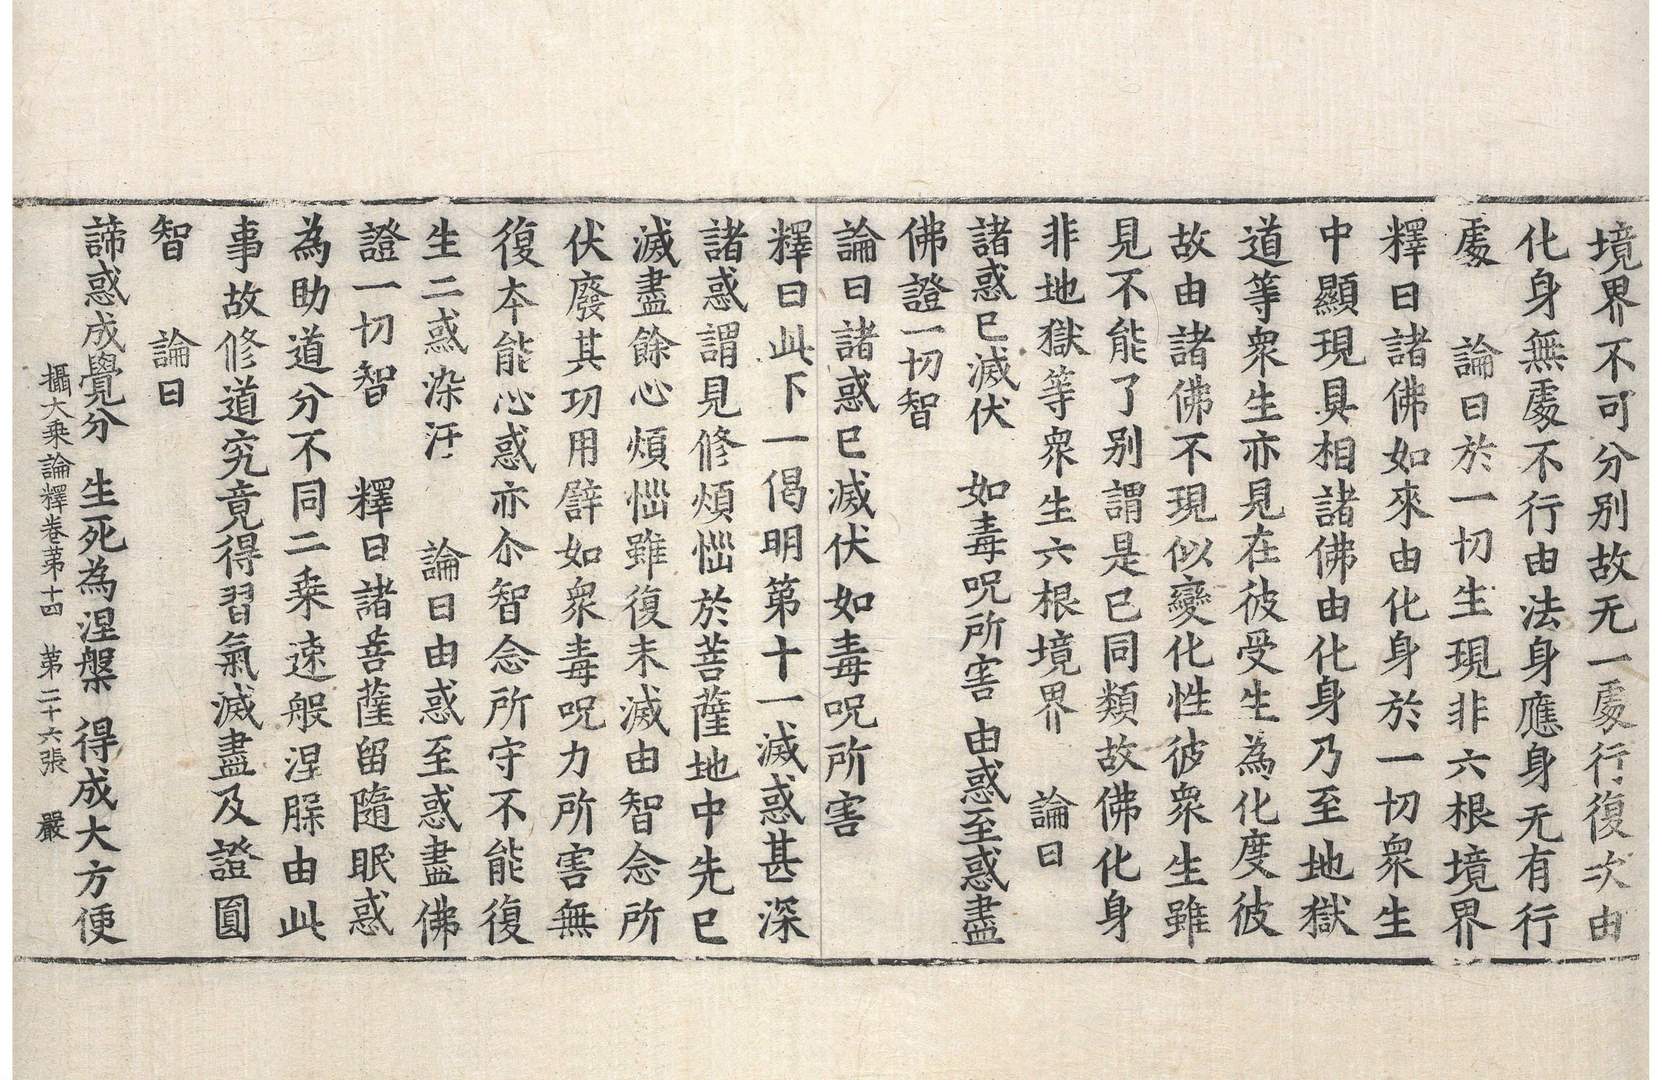 境界不可分别故无一處行復次由
化身無處不行由法身應身无有行
處　論曰於一切生現非六根境界
釋曰諸佛如來由化身於一切衆生
中顯現具相諸佛由化身乃至地獄
道等衆生亦見在彼受生為化度彼
故由諸佛不現似變化性彼衆生雖
見不能了别謂是已同類故佛化身
非地獄等衆生六根境界　論曰
諸惑已滅伏　如毒呪所害　由惑至惑盡
佛證一切智
論曰諸惑已滅伏如毒呪所害
釋曰此下一偈明第十一滅惑甚深
諸惑謂見修煩惱於菩薩地中先已
滅盡餘心煩惱雖復未滅由智念所
伏廢其功用譬如衆毒呪力所害無
復本能心惑亦尒智念所守不能復
生二惑染汙　論曰由惑至惑盡佛
證一切智　釋曰諸菩薩留隨眠惑
為助道分不同二乗速般涅槃由此
事故修道究竟得習氣滅盡及證圓
智　論曰
諦惑成覺分　生死為涅槃　得成大方便
攝大乗論釋卷苐十四　苐二十六張　嚴